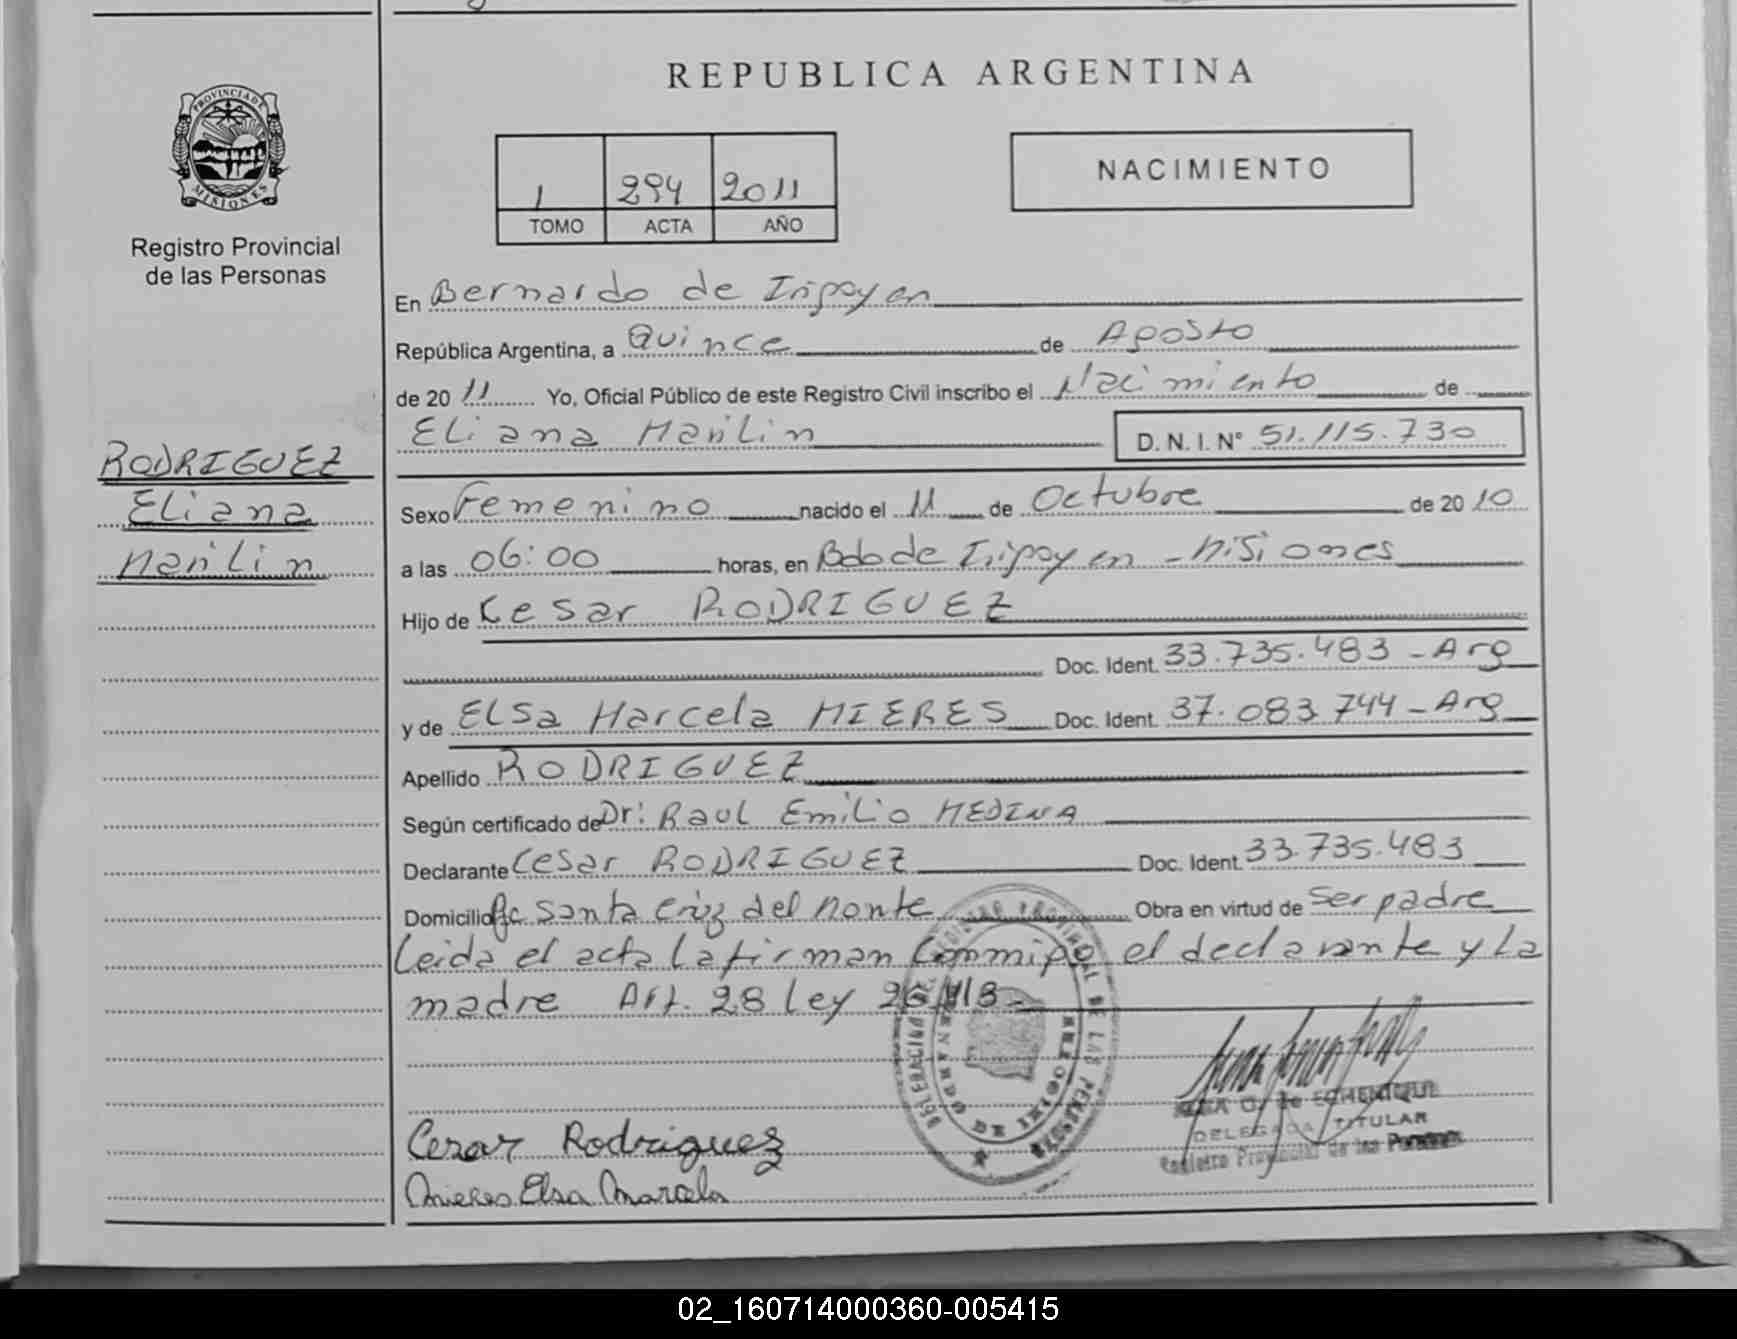 REPUBLICA ARGENTINA
PROVINCIA DE MISIONES
Registro Provincial
de las Personas
1 294 2011
TOMO ACTA AÑO
NACIMIENTO
En Bernardo de Irigoyen
República Argentina, a Quince de Agosto
de 20 11 Yo, Oficial Público de este Registro Civil inscribo el Nacimiento de
Eliana Marilin D. N. I. N° 51.115.730
RODRIGUEZ
Eliana
Marilin
Sexo Femenino nacido el 11 de Octubre de 20 10
a las 06:00 horas, en Bdo de Irigoyen - Misiones
Hijo de Cesar RODRIGUEZ
Doc. Ident. 33.735.483 - Arg
y de ELSa Marcela MIERES Doc. Ident. 37.083.744 - Arg
Apellido RODRIGUEZ
Según certificado de Dr: Raul Emilio MEDINA
Declarante Cesar RODRIGUEZ Doc. Ident. 33.735.483
Domicilio Santa Cruz del Monte Obra en virtud de Ser padre
Leida el acta la firman Conmigo el declarante y La
madre Art. 28 Ley
DE ECHENIQUE
DELEGADA TITULAR
Registro Provincial de las Personas
Cesar Rodriguez
Mieres Elsa Marcela
02_160714000360-005415